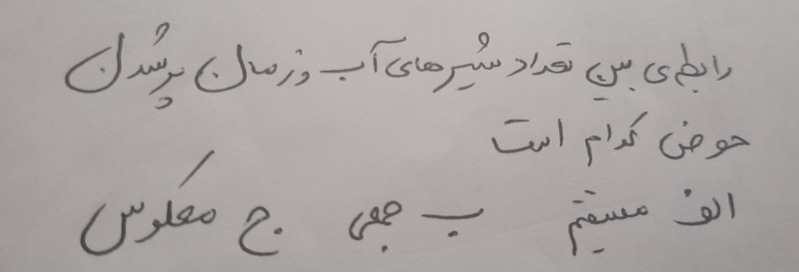 رابطه‌ی بین تعداد شیرهای آب و زمان پرشدن
حوض کدام است
الف مستقیم ب جمعی ج معکوس